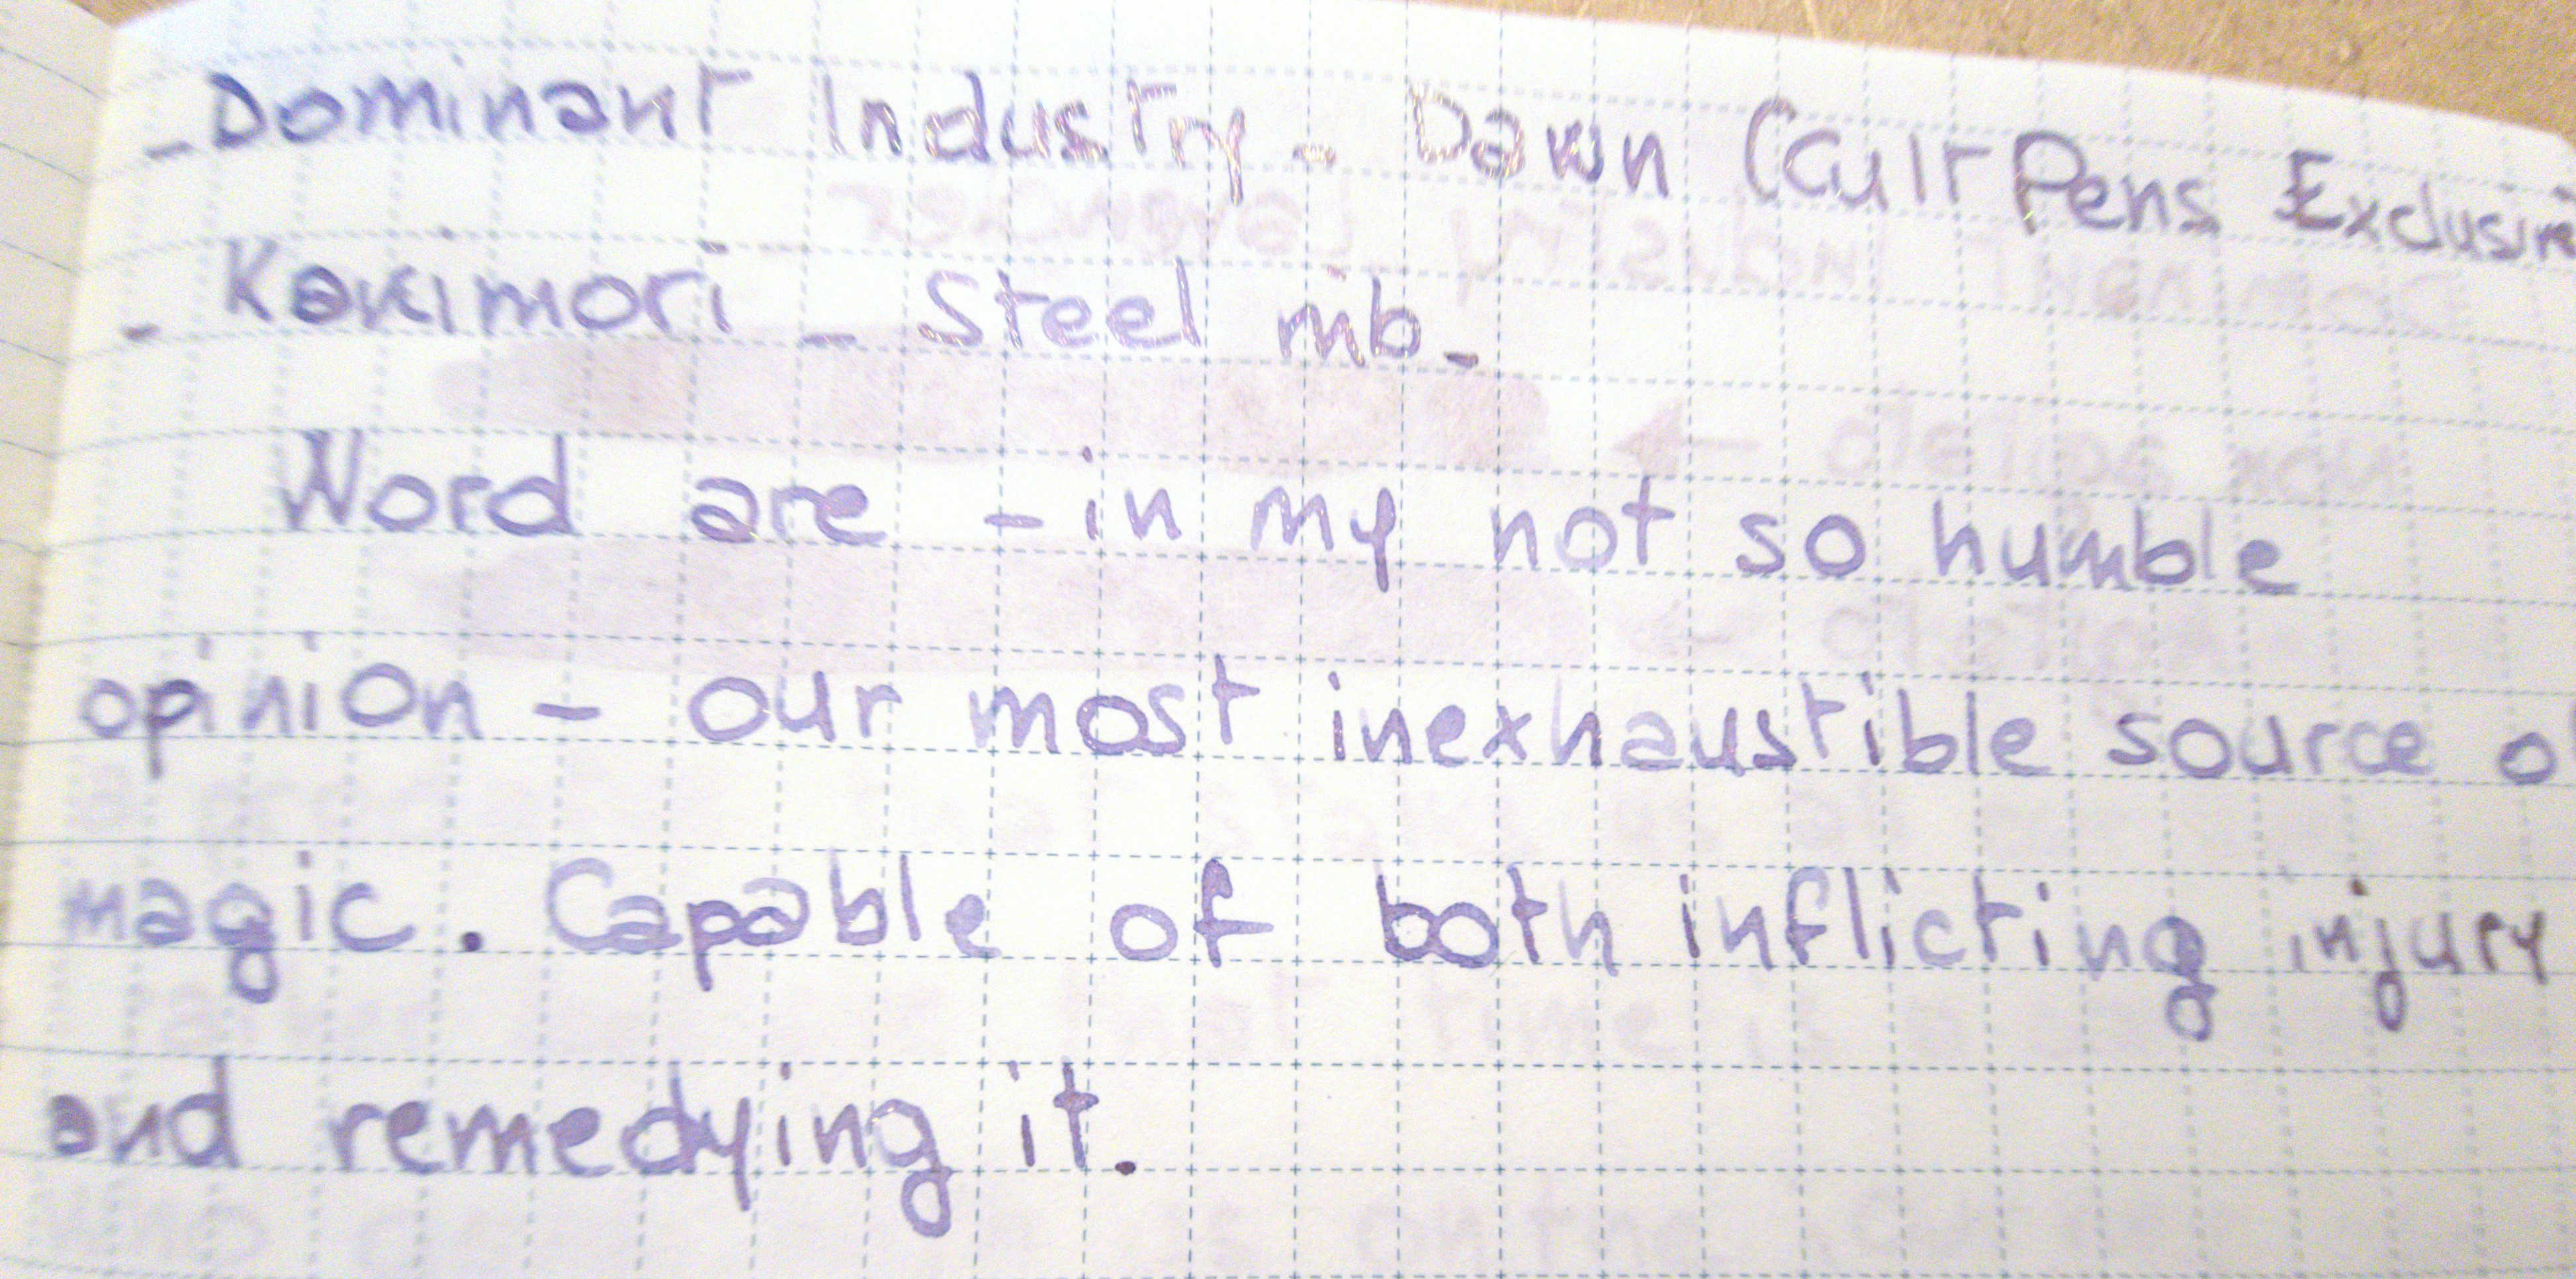 - Dominant Industry - Dawn (Cult Pens Exclusive
- Kakimori - Steel nib -
Word are - in my not so humble
opinion - our most inexhaustible source o
magic. Capable of both inflicting injury
and remedying it.